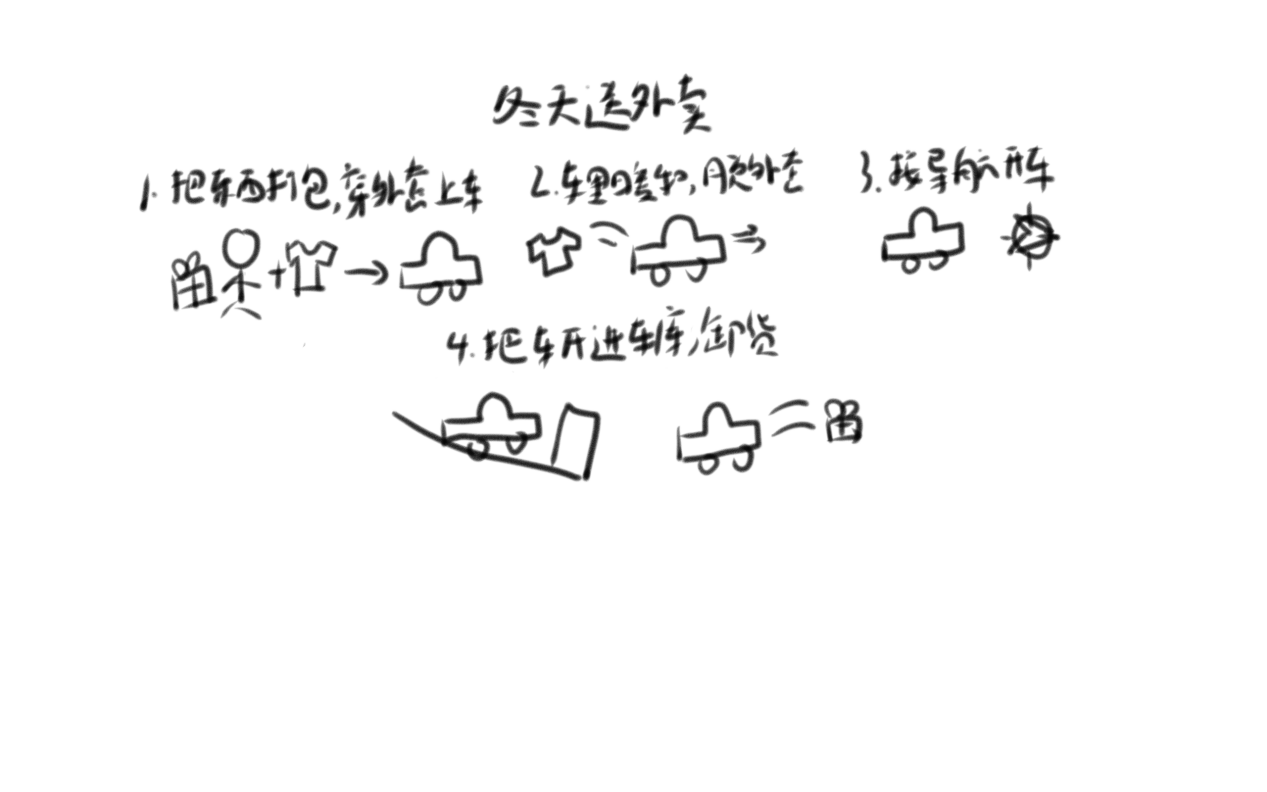 冬天送外卖
1. 把东西打包,穿外套上车
2. 车里暖和,脱外套
3. 按导航开车
4. 把车开进车库,卸货